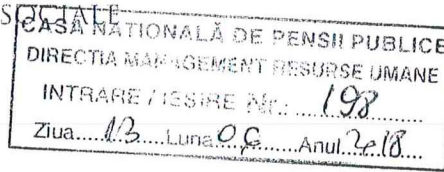 SOCIALE
CASA NAȚIONALĂ DE PENSII PUBLICE
DIRECTIA MANAGEMENT RESURSE UMANE
INTRARE / IESIRE Nr.: 198
Ziua 13 Luna Anul 2018